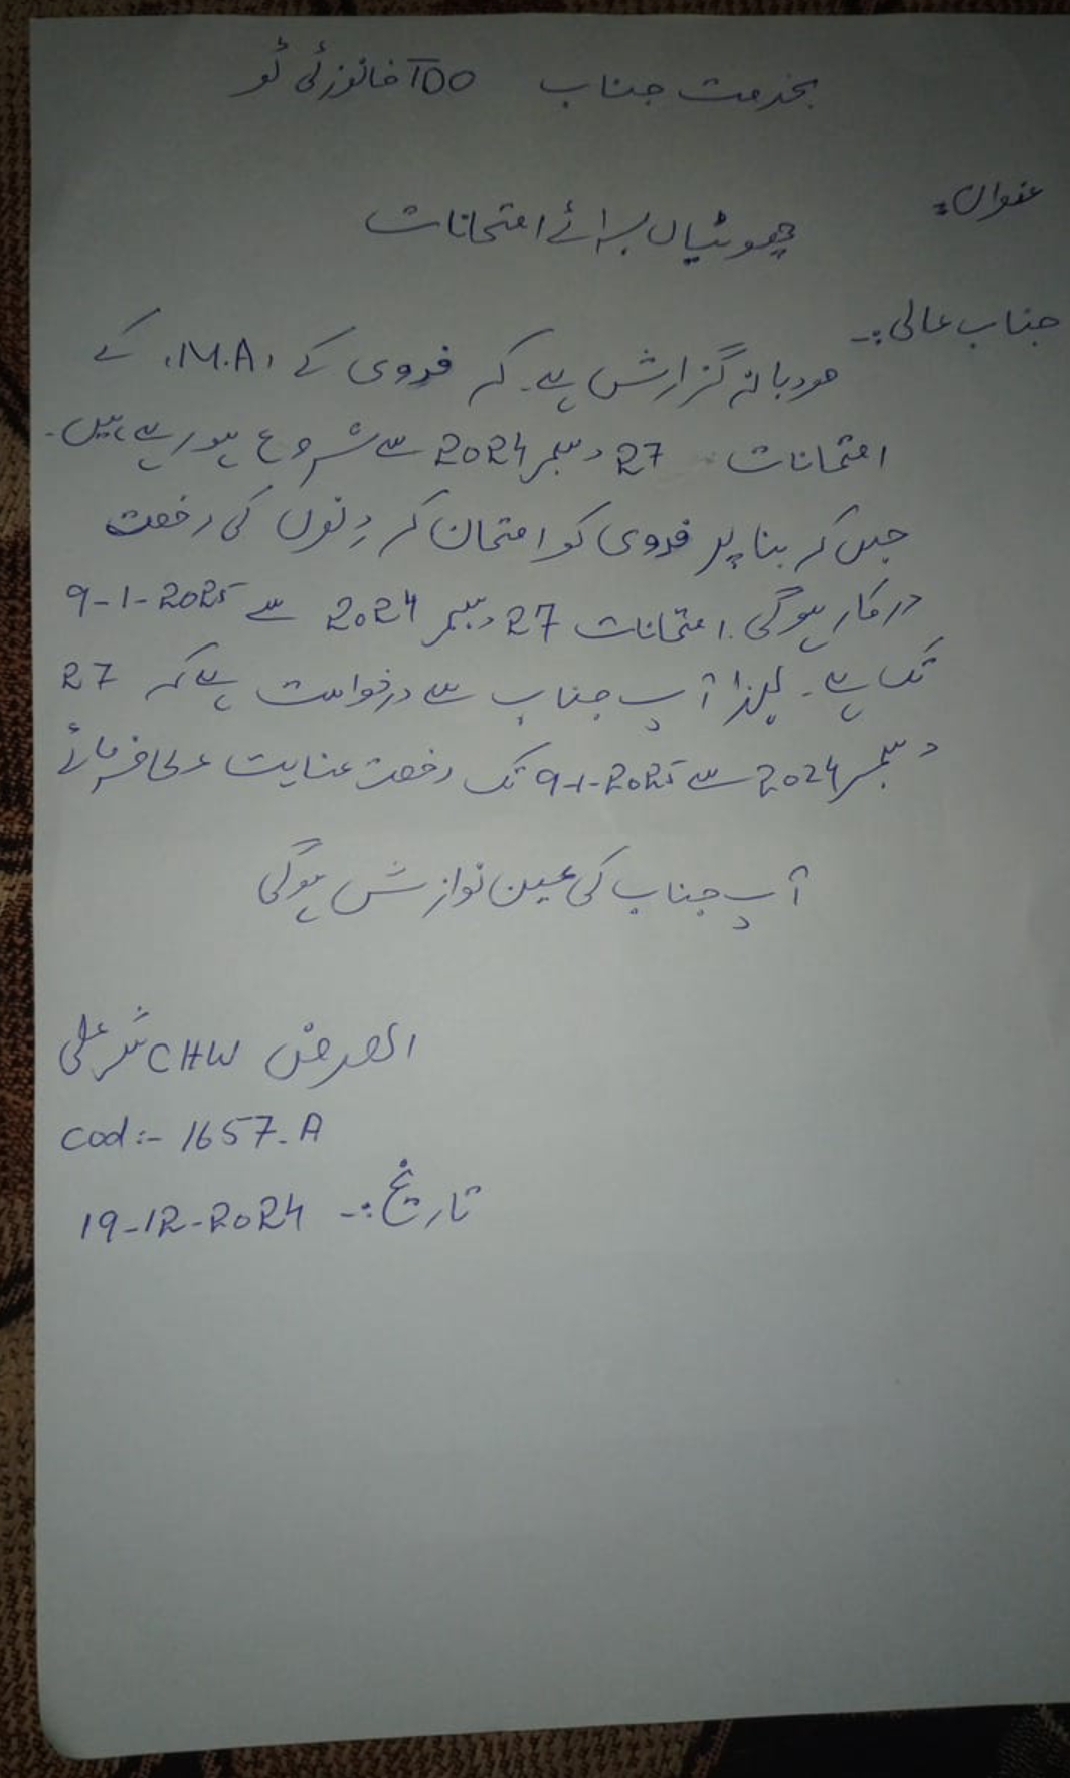 بخدمت جناب TDO خانوزئی ٹو
عنوان:
چھوٹیاں برائے امتحانات
جناب عالی:-
مودبانہ گزارش ہے۔ کہ فدوی کے M.A. کے
امتحانات 27 دسمبر 2024 سے شروع ہورہے ہیں۔
جس کہ بنا پر فدوی کو امتحان کہ دنوں کی رخصت
درکار ہوگی۔ امتحانات 27 دسمبر 2024 سے 9-1-2025
تک ہے۔ لہٰذا آپ جناب سے درخواست ہے کہ 27
دسمبر 2024 سے 9-1-2025 تک رخصت عنایت عطا فرمائے
آپ جناب کی عین نوازش ہوگی
العرض CHW علی
Cod:- 1657-A
تاریخ:- 19-12-2024